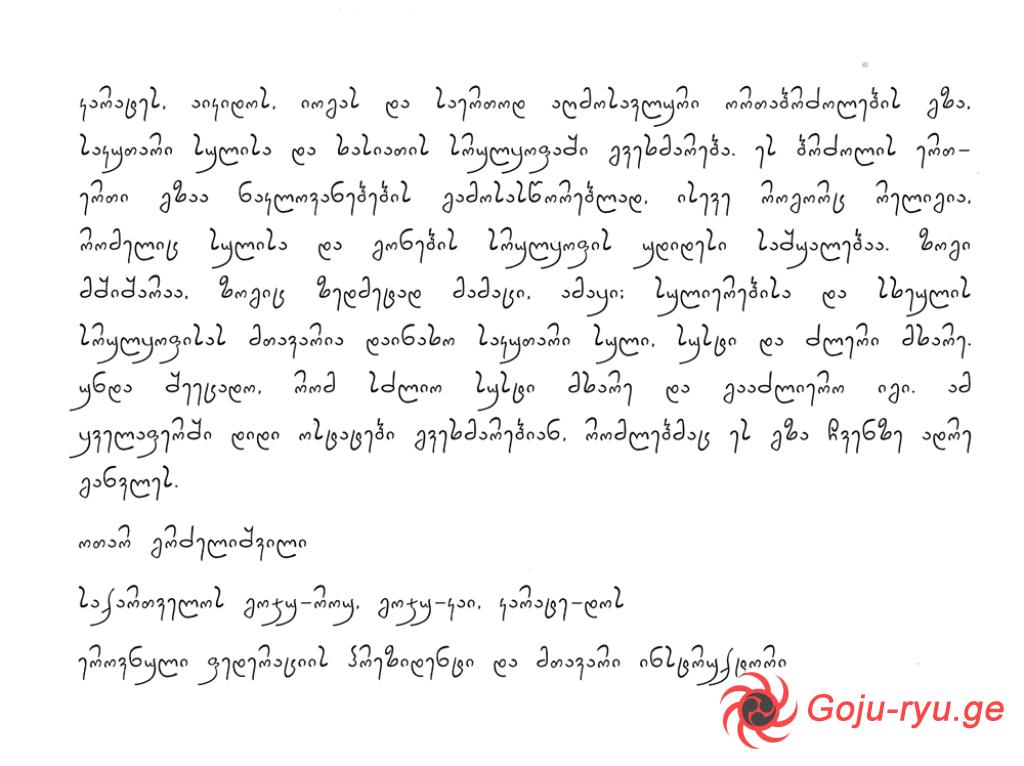 კარატეს, აიკიდოს, იოგას და საერთოდ აღმოსავლური ორთაბრძოლების გზა,
საკუთარი სულისა და ხასიათის სრულყოფაში გვეხმარება. ეს ბრძოლის ერთ-
ერთი გზაა ნაკლოვანებების გამოსასწორებლად, ისევე როგორც რელიგია,
რომელიც სულისა და გონების სრულყოფის უდიდესი საშუალებაა. ზოგი
მშიშარაა, ზოგიც ზედმეტად მამაცი, ამაყი; სულიერებისა და სხეულის
სრულყოფისას მთავარია დაინახო საკუთარი სული, სუსტი და ძლერი მხარე.
უნდა შეეცადო, რომ სძლიო სუსტი მხარე და გააძლიერო იგი. ამ
ყველაფერში დიდი ოსტატები გვეხმარებიან, რომლებმაც ეს გზა ჩვენზე ადრე
განვლეს.
ოთარ გრძელიშვილი
საქართველოს გოჯუ-რიუ, გოჯუ-კაი, კარატე-დოს
ეროვნული ფედერაციის პრეზიდენტი და მთავარი ინსტრუქტორი
Goju-ryu.ge